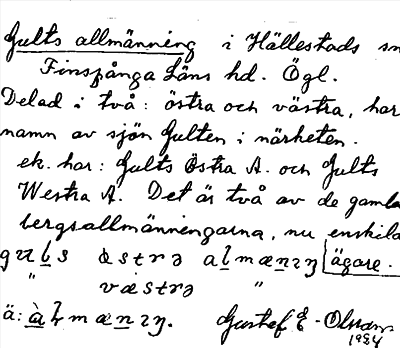 Gults allmänning i Hällestads sn
Finspånga Läns hd. Ögl.
Delad i två: östra och västra, har
namn av sjön Gulten i närheten.
ek. har: Gults Östra A. och Gults
Westra A. Det är två av de gamla
bergsallmänningarna, nu enskila
ägare.
" västrə "
ä:
Gustaf E. Olsson
1934